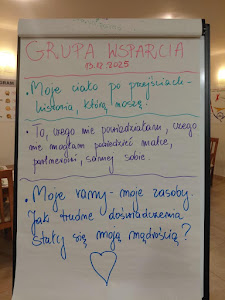 GRUPA WSPARCIA
13.12.2025
• Moje ciało po przejściach-
historia, którą noszę.
• To, czego nie powiedziałam, czego
nie mogłam powiedzieć matce,
partnerowi, samej sobie.
• Moje ramy - moje zasoby.
Jak trudne doświadczenia
stały się moją mądrością?